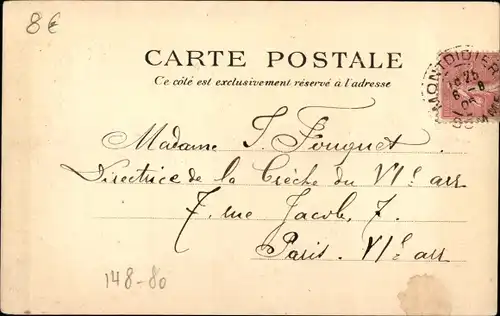 8€
CARTE POSTALE
Ce côté est exclusivement réservé à l'adresse
MONTDIDIER
18 25
6 -8
05
SOMME
Madame J. Fouquet
Directrice de la Crèche du VIe arr
7, rue Jacob, 7.
Paris. VIe arr
148-80